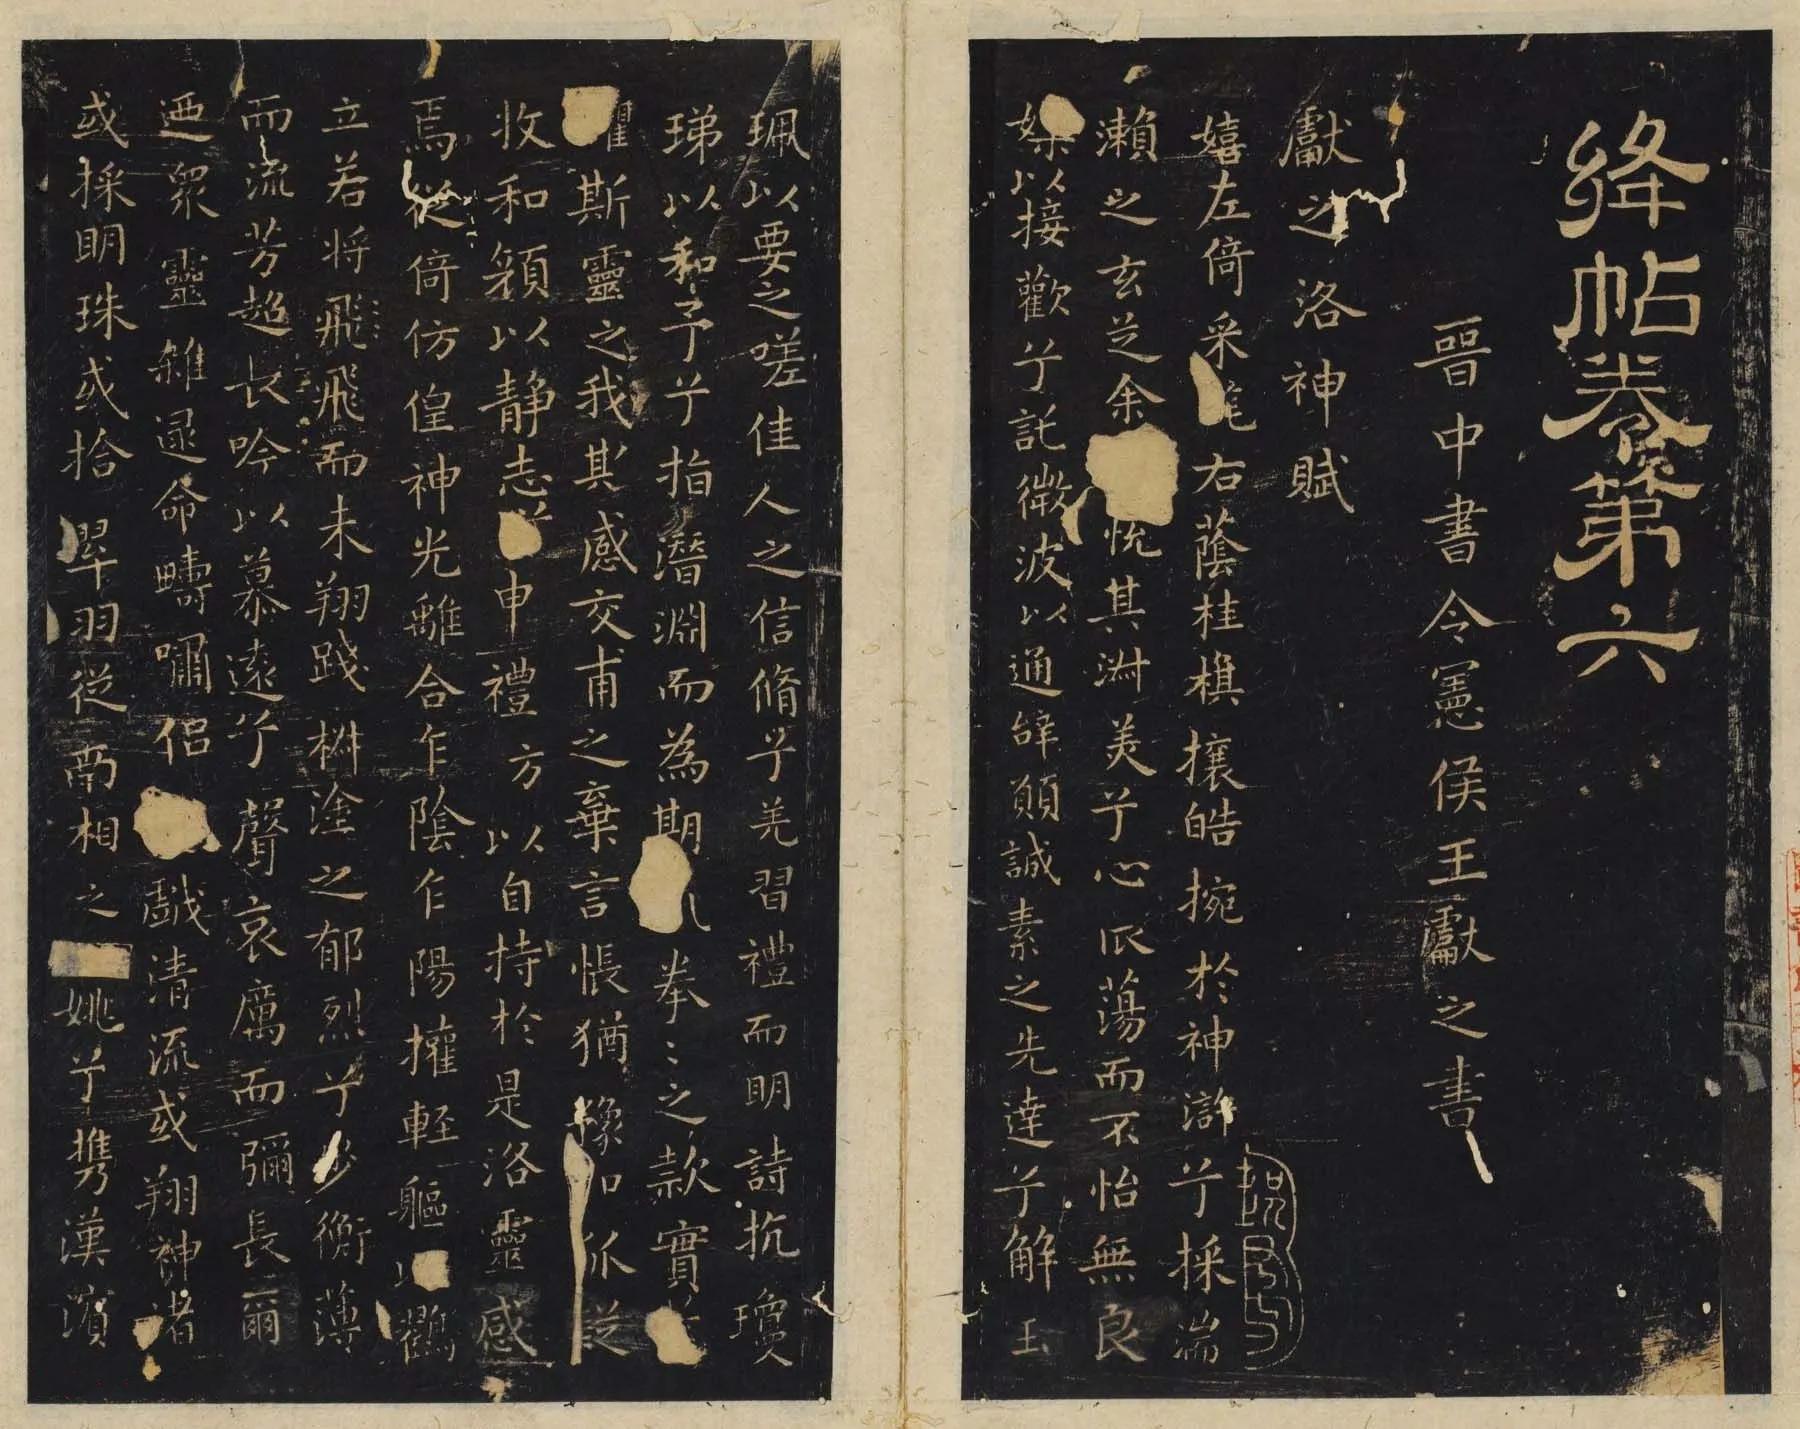 絳帖卷第六
晉中書令憲侯王獻之書
獻之洛神賦
嬉左倚采旄右蔭桂樴攘皓捥於神滸兮採湍
瀨之玄芝余悅其淑美兮心振蕩而不怡無良
媒以接歡兮託微波以通辭願誠素之先達兮解玉
珮以要之嗟佳人之信脩兮羌習禮而明詩抗瓊
珶以和予兮指潛淵而為期拳〻之款實
懼斯靈之我欺感交甫之棄言悵猶豫
收和顏以靜志兮申禮方以自持於是洛靈感
焉徙倚仿偟神光離合乍陰乍陽擢輕軀以鶴
立若將飛飛而未翔踐椒塗之郁烈兮步衡薄
而流芳超長吟以慕遠兮聲哀厲而彌長爾
迺眾靈雜遝命疇嘯侶戲清流或翔神渚
或採明珠或拾翠羽從南湘之姚兮攜漢濱